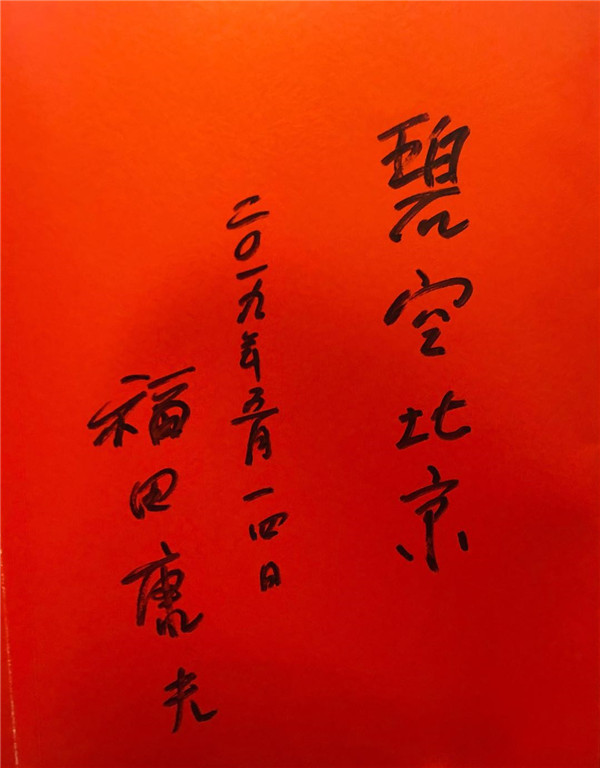 碧空北京
二〇一九年五月一四日
福田康夫